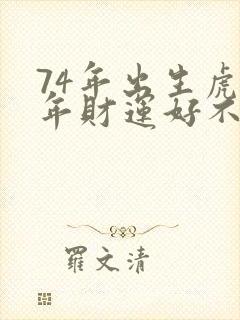 74年出生虎
年財運好不
羅文清